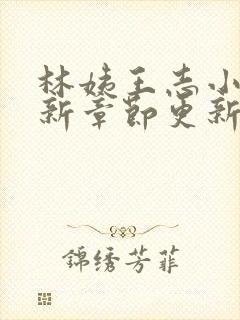 林姨王志小
新章节更新
錦绣芳菲